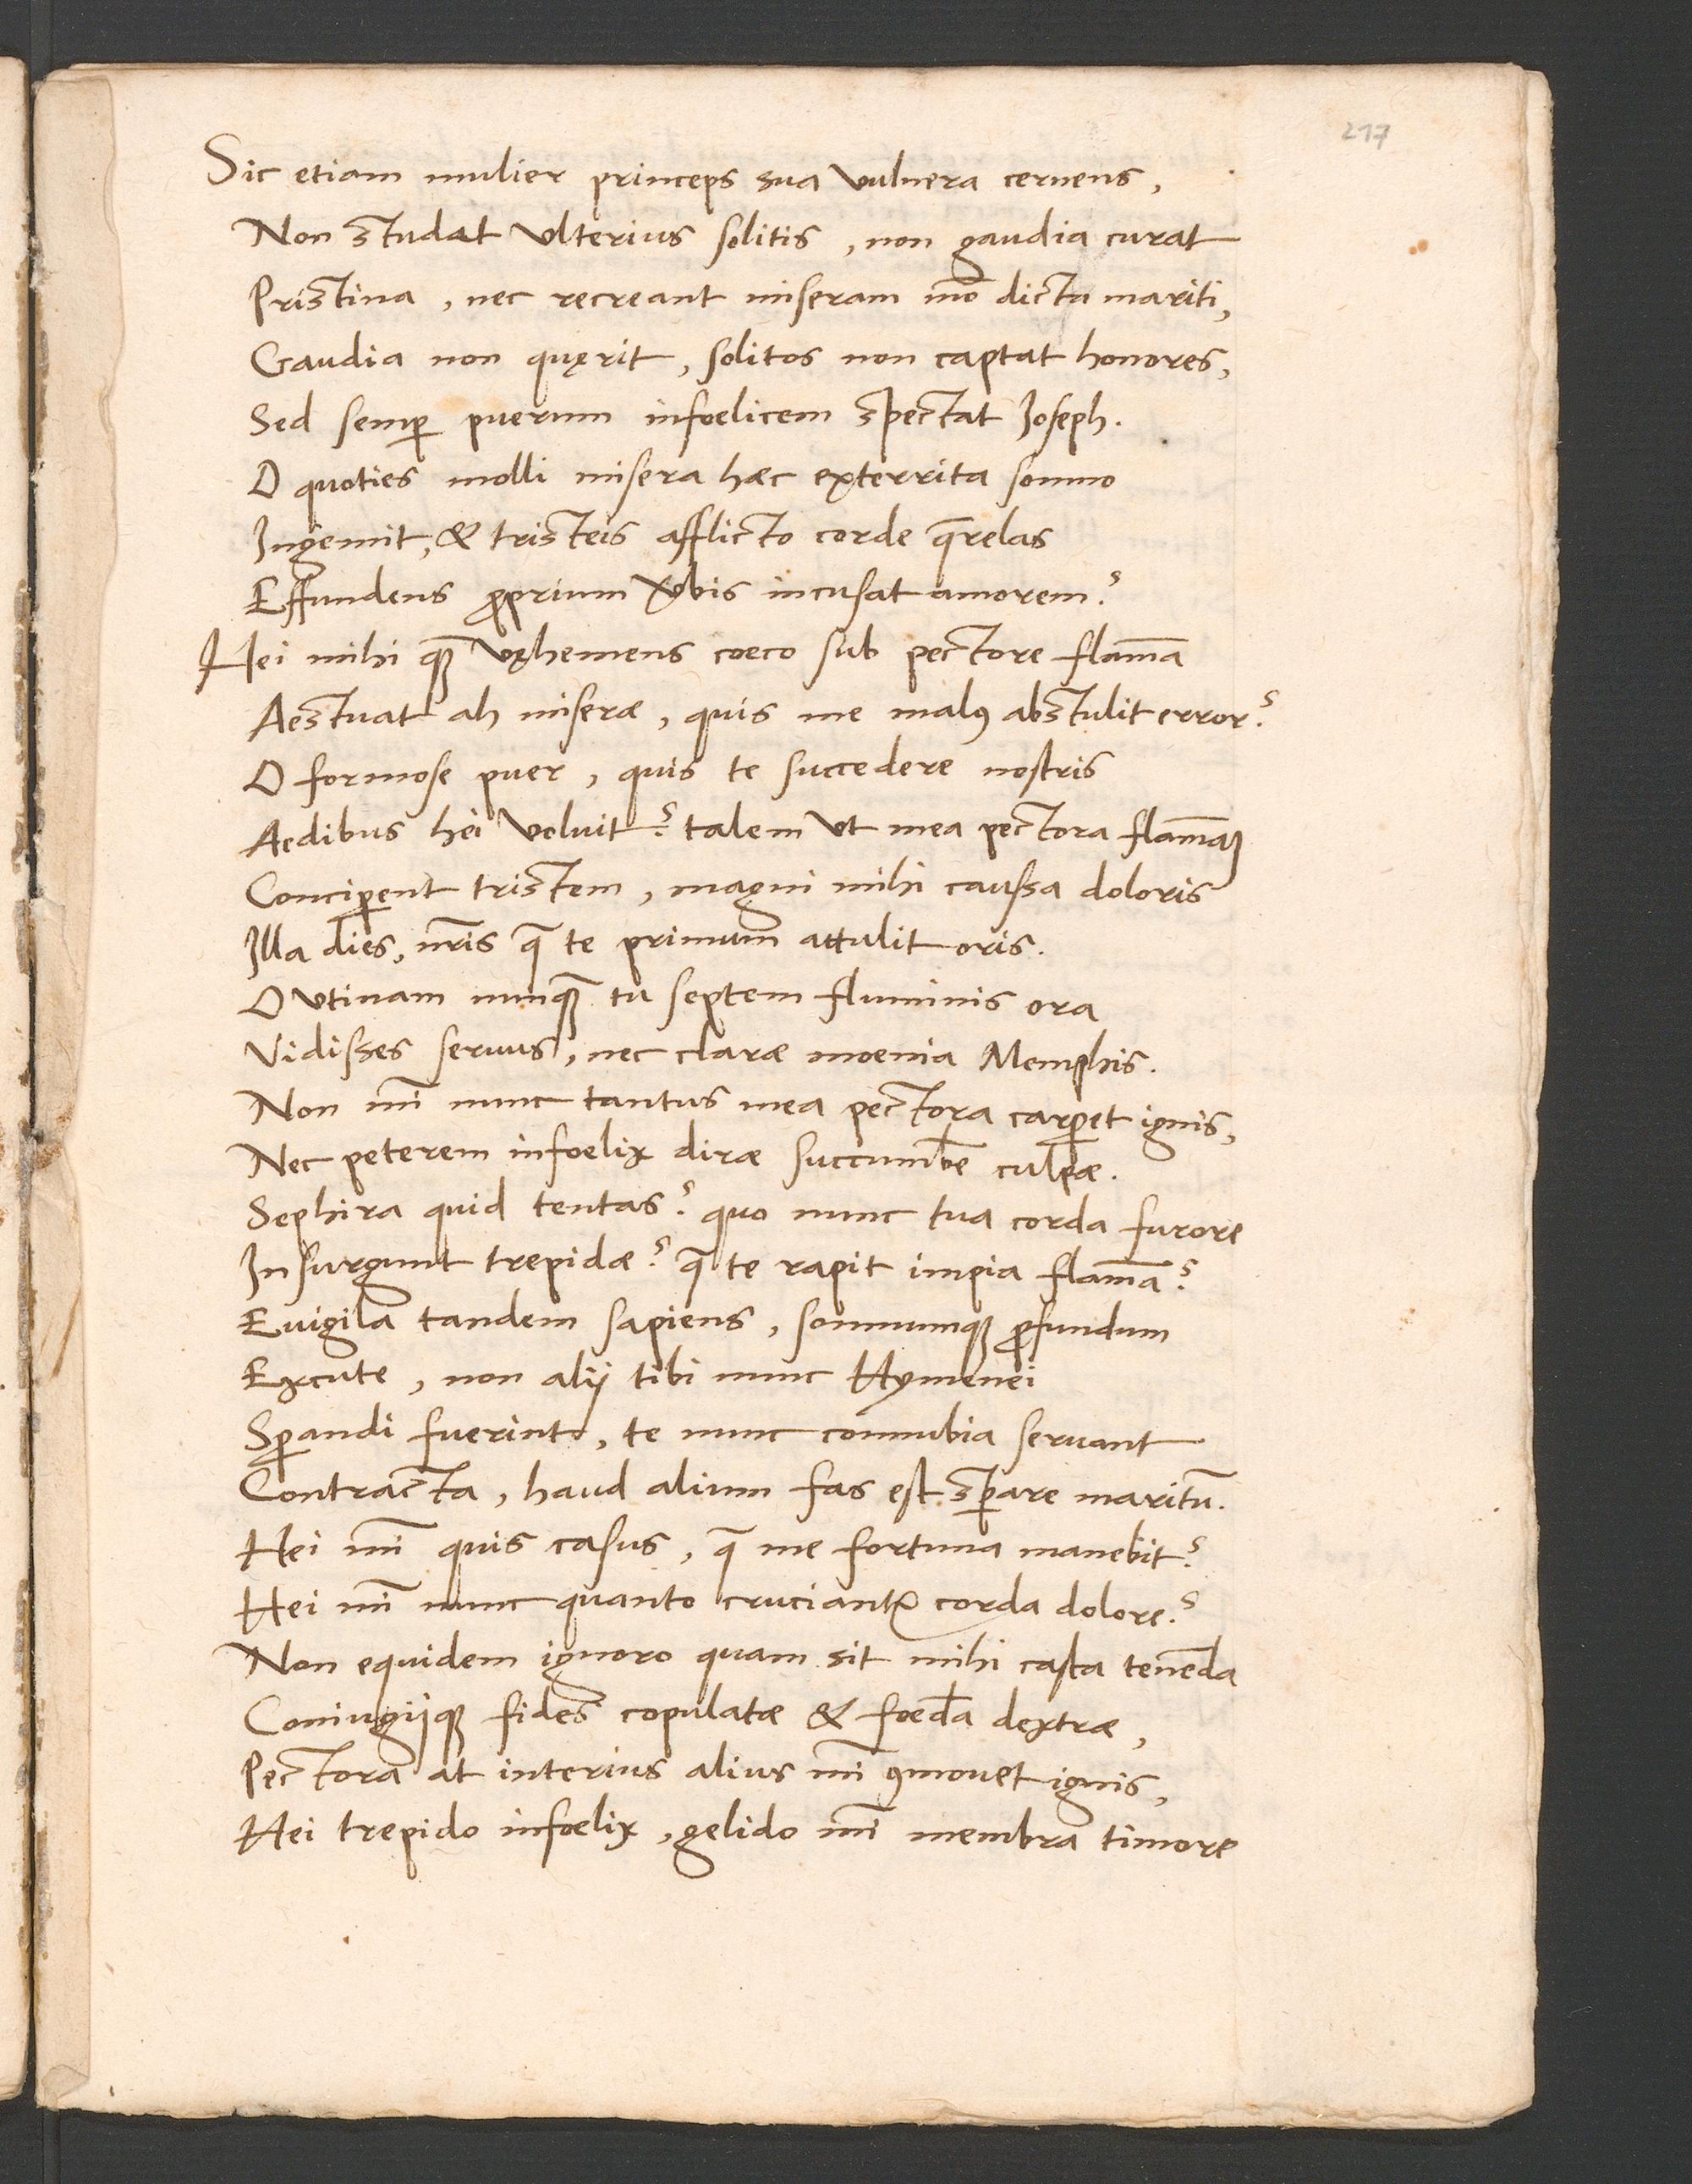 217
Sic etiam mulier princeps sua vulnera cernens,
Non studet vlterius solitis, non gaudia curat
Pristina, nec recreant miseram mō dicta mariti,
Gaudia non quęrit, solitos non captat honores,
Sed semꝑ puerum infoelicem spectat Joseph.
O quoties molli misera hæc exterrita somno
Ingemit, & tristeis afflicto corde q̄relas
Effundens ꝓprium v̄bis incusat amorem?
Hei mihi qꝫ̄ vęhemens coeco sub pectore flam̄a
Aestuat ah miseræ, quis me malꝰ abstulit error?
O formose puer, quis te succedere nostris
Aedibus hei voluit? talem vt mea pectora flam̄aꝫ
Conciꝑent tristem, magni mihi caussa doloris
Illa dies, nr̄is q̄ te primum attulit oris.
O vtinam nunqꝫ̄ tu septem fluminis ora
Vidisses seruus, nec claræ moenia Memphis.
Non mī nunc tantus mea pectora carꝑet ignis,
Nec peterem infoelix diræ succumbē culpæ.
Sephira quid tentas? quo nunc tua corda furore
Insurgunt trepidæ? q̄ te rapit impia flam̄a?
Euigila tandem sapiens, somnumqꝫ ꝓfundum
Excute, non alij tibi nunc Hymenei
Sꝑandi fuerint, te nunc connubia seruant
Contracta, haud alium fas est sꝑare maritū.
Hei mī quis casus, q̄ me fortuna manebit?
Hei mī nunc quanto cruciantᷣ corda dolore?
Non equidem ignoro quam sit mihi casta tenēda
Coniugijqꝫ fides copulatæ & foed̄a dextræ,
Pectora at interius alius mī ꝯmouet ignis,
Hei trepido infoelix, gelido mī membra timore